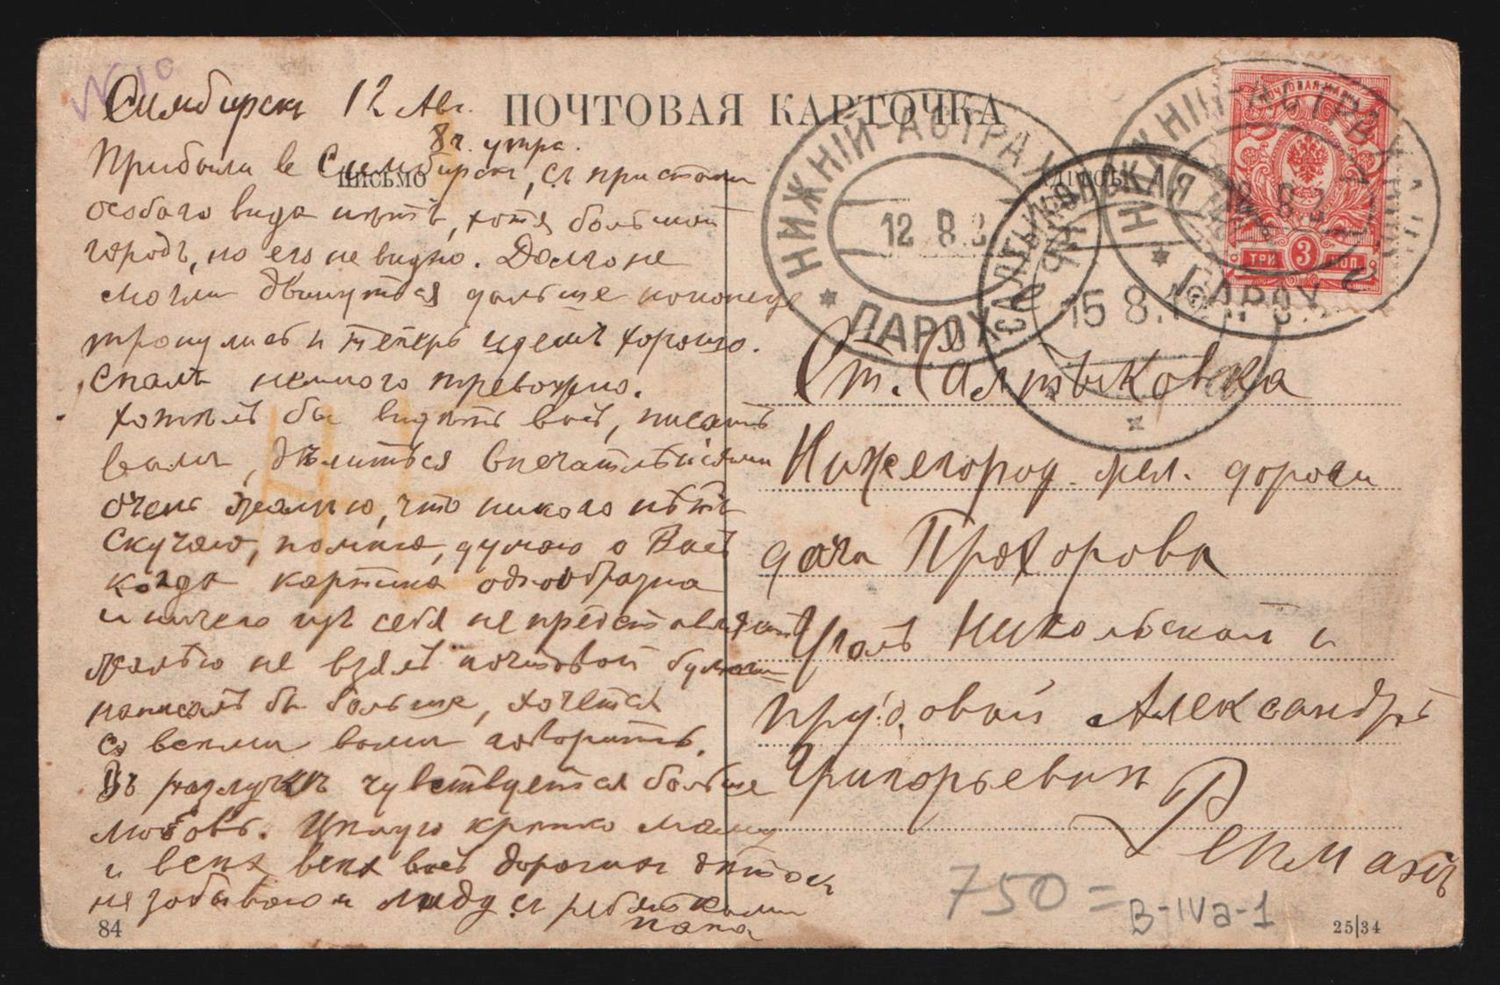 № 10
ПОЧТОВАЯ КАРТОЧКА
письмо
Симбирскъ 12 Авг.
8 ч. утра.
Прибыли въ Симбирскъ, съ пристани
особаго вида нѣтъ, хотя большой
городъ, но его не видно. Долго не
могли двинуться дальше наконецъ
тронулись и теперь идемъ хорошо.
Спалъ немного тревожно.
Хотѣлъ бы видѣть васъ, писать
вамъ, дѣлиться впечатлѣніями
очень жалѣю, что никого нѣтъ
Скучаю, помню, думаю о Васъ
когда картина однообразна
и ничего изъ себя не представляетъ
жалѣю не взялъ почтовой бумаги
написалъ бы больше, хочется
со всеми вами говорить.
Въ разлукѣ чувствуется больше
любовь. Цѣлую крепко маму
и всех всех васъ дорогихъ дѣтокъ
не забываю и Лиду съ ребятками
папа
НИЖНІЙ-АСТРАХ
12 8
ПАРОХ
САЛТЫКОВСКАЯ
15 8
НИЖНІЙ-АСТРАХАН
12 8
ПАРОХ
ПОЧТОВАЯ МАРКА
ТРИ 3 КОП.
Ст. Салтыковка
Нижегород. жел. дороги
дача Прохорова
Уголъ Никольской и
прудовой Александръ
Григорьевичъ
750 =
B-IVa-1
84
25|34